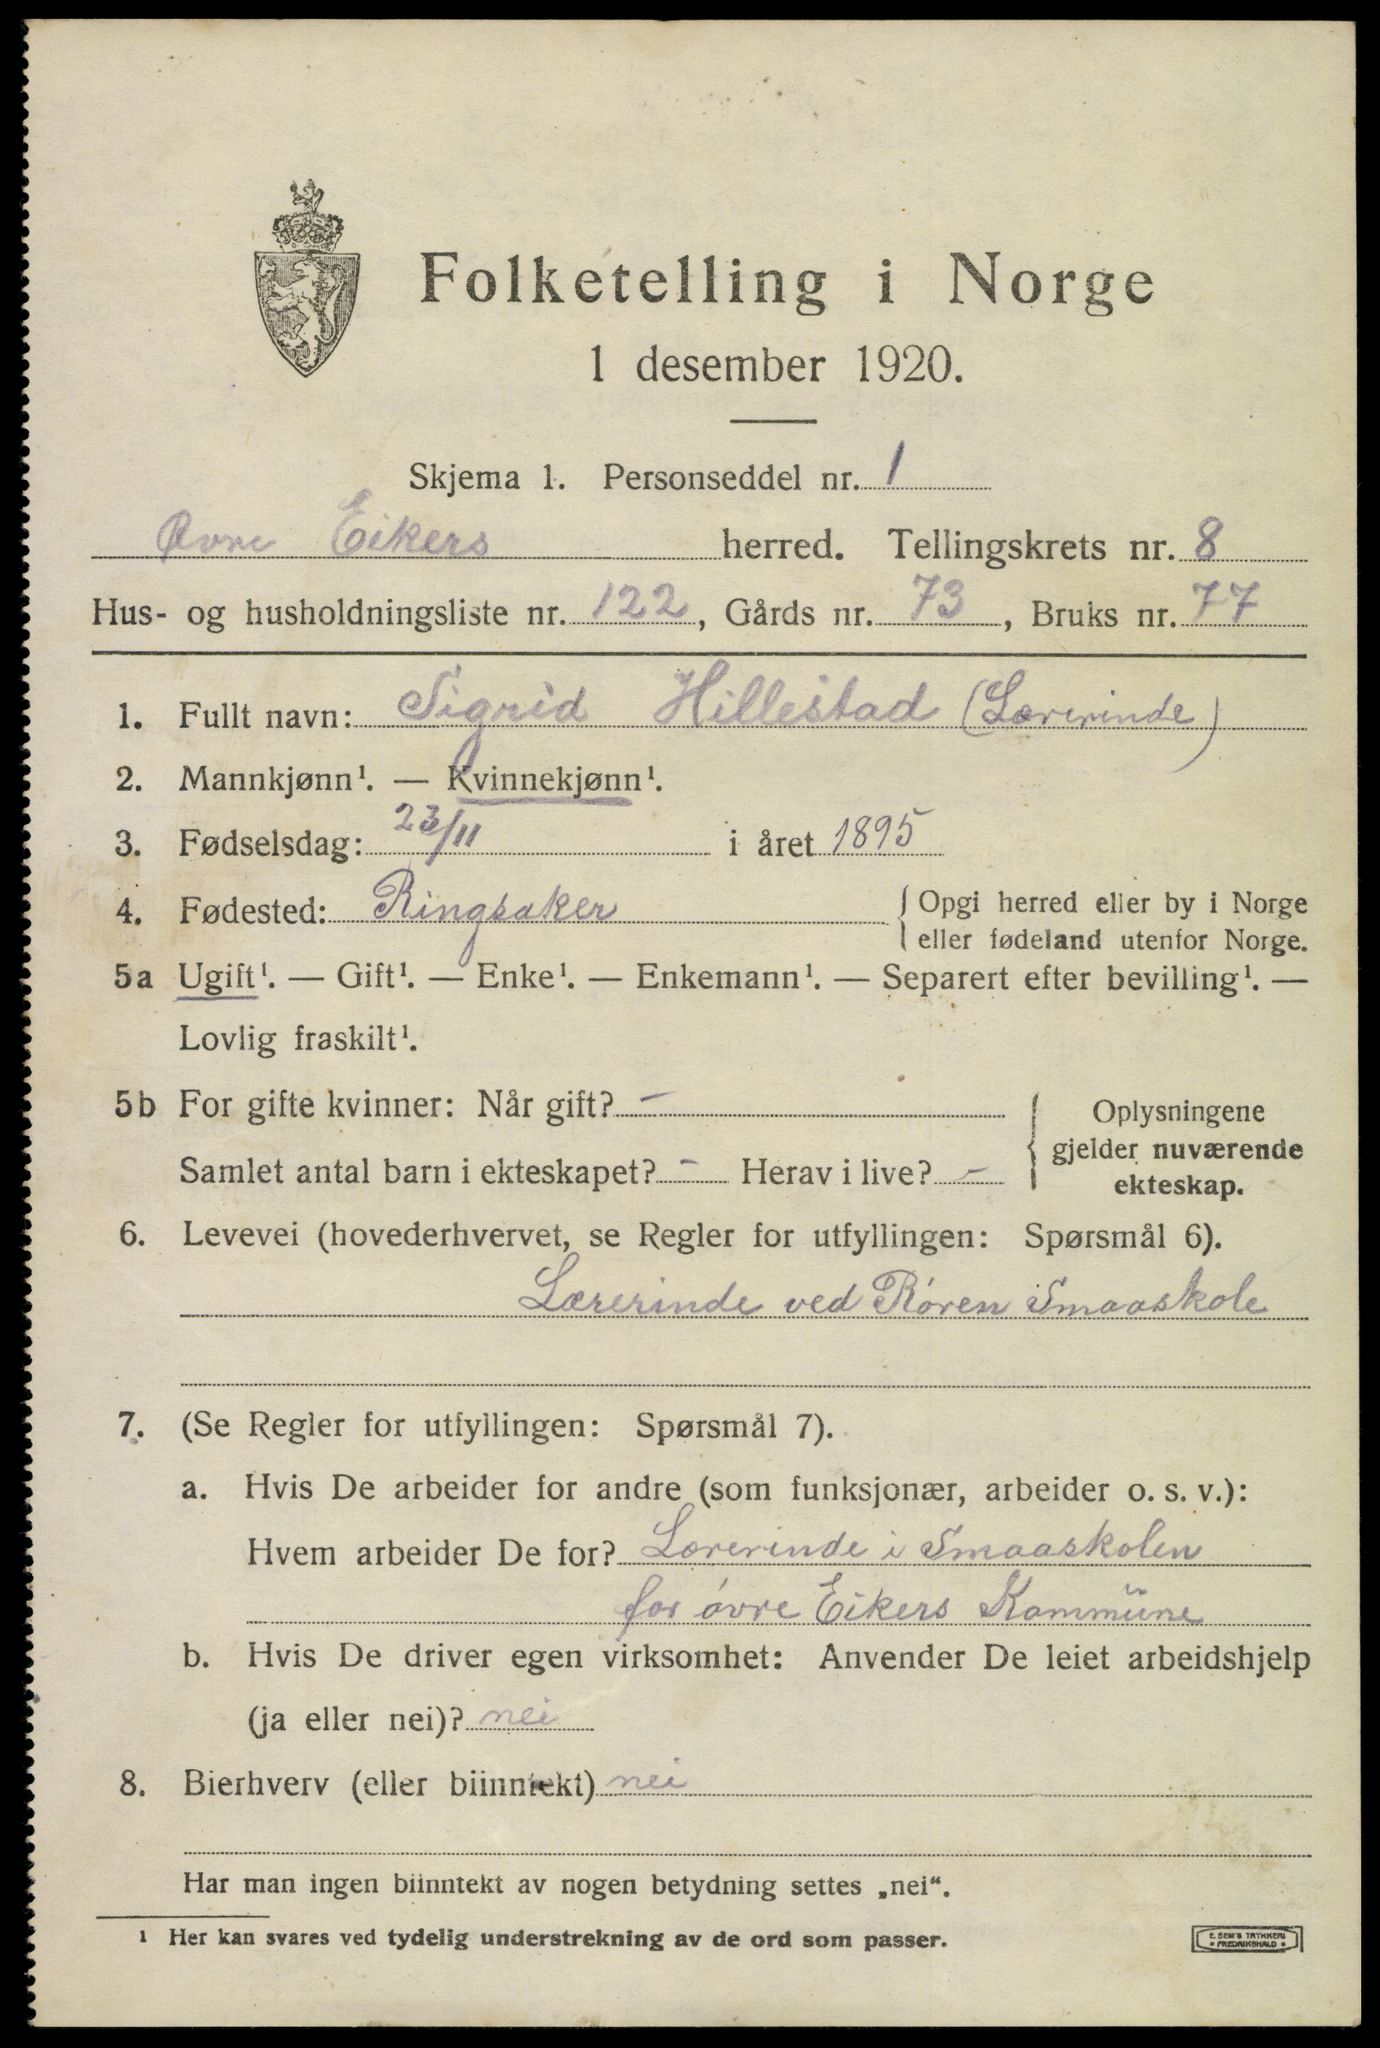 Folketelling i Norge
1 desember 1920.
Skjema 1. Personseddel nr. 1
Øvre Eikers herred. Tellingskrets nr. 8
Hus- og husholdningsliste nr. 122, Gårds nr. 73, Bruks nr. 77
1. Fullt navn: Sigrid Hillestad (Lærerinde)
2. Mannkjønn¹. — Kvinnekjønn¹.
3. Fødselsdag: 23/11 i året 1895
4. Fødested: Ringsaker { Opgi herred eller by i Norge
eller fødeland utenfor Norge.
5a Ugift¹. — Gift¹. — Enke¹. — Enkemann¹. — Separert efter bevilling¹. —
Lovlig fraskilt¹.
5b For gifte kvinner: Når gift? – { Oplysningene
gjelder nuværende
Samlet antal barn i ekteskapet? – Herav i live? –
ekteskap.
6. Levevei (hovederhvervet, se Regler for utfyllingen: Spørsmål 6).
Lærerinde ved Røren Smaaskole
7. (Se Regler for utfyllingen: Spørsmål 7).
a. Hvis De arbeider for andre (som funksjonær, arbeider o. s. v.):
Hvem arbeider De for? Lærerinde i Smaaskolen
for øvre Eikers Kommune
b. Hvis De driver egen virksomhet: Anvender De leiet arbeidshjelp
(ja eller nei)? nei
8. Bierhverv (eller biinntekt) nei
Har man ingen biinntekt av nogen betydning settes „nei“.
¹ Her kan svares ved tydelig understrekning av de ord som passer.
E. SEM'S TRYKKERI
• FREDRIKSHALD •